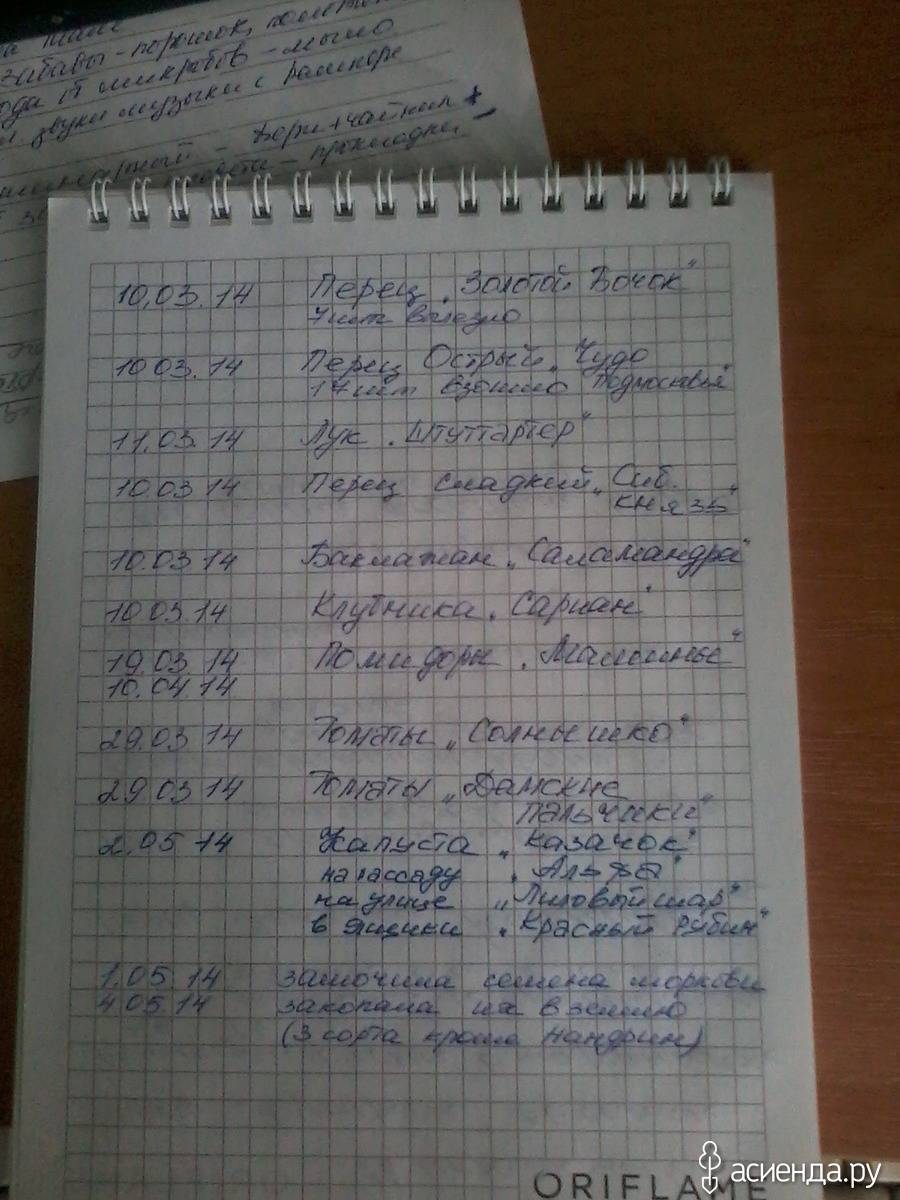 порошок,
микробов - мыло
звуки музыки с
- прокладки -
10.03.14 Перец „Золотой Бочок“
7 шт вылезло
10 03.14 Перец Острый „Чудо
17 шт взошло Подмосковья“
11.03.14 Лук „Штуттгартер“
10.03 14 Перец сладкий „Сиб.
князь“
10.03 14 Баклажан „Саламандра“
10 03.14 Клубника „Сариан“
19.03 14 Помидоры „Малышные“
10.04 14
29.03 14 Томаты „Солнышко“
29 03 14 Томаты „Дамские
пальчики“
2.05 14 Капуста „Казачок“
на рассаду „Альфа“
на улице „Лиловый шар“
в ящики „Красный Рубин“
1.05 14 замочила семена моркови
4 05 14 закопала их в землю
(3 сорта кроме Нандрин)
ORIFLAME
асиенда.ру